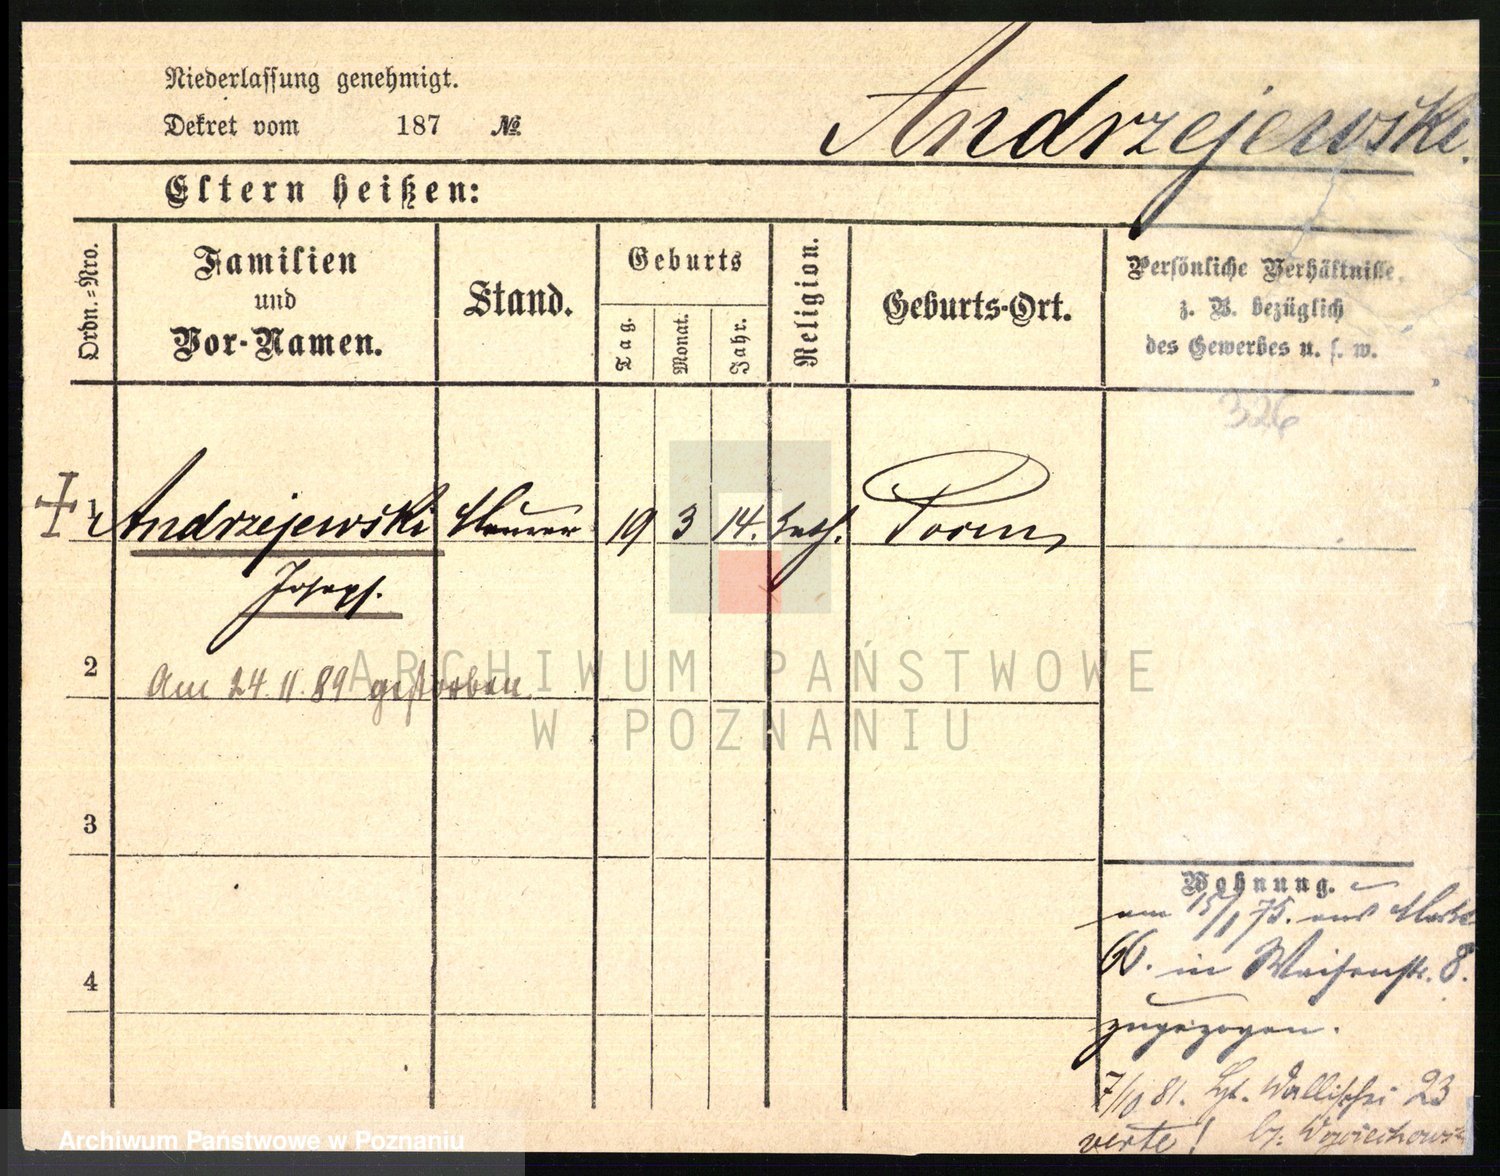 Niederlassung genehmigt.
Dekret vom 187 №
Andrzejewski.
Eltern heißen:
Ordn.=Nro.
Familien
und
Vor-Namen.
Stand.
Geburts
Tag.
Monat.
Jahr.
Religion.
Geburts-Ort.
Persönliche Verhältniße,
z. B. bezüglich
des Gewerbes u. s. w.
326
1 Andrzejewski Maurer 19 3 14. kath. Posen
Joseph.
2 Am 24.11.89 gestorben
3
4
Wohnung.
am 15/1 75. aus
66. in Waisenstr. 8.
zugezogen.
7/10 81. Wallischei 23
verte!
ARCHIWUM PAŃSTWOWE
W POZNANIU
Archiwum Państwowe w Poznaniu